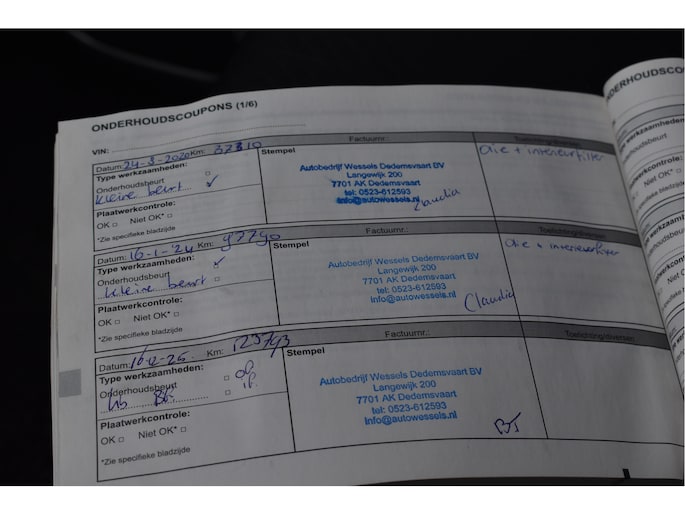 ONDERHOUDSCOUPONS (1/6)
VIN:
Datum: 24-3-2020 Km: 37310
Type werkzaamheden:
Onderhoudsbeurt
kleine beurt ✓
Plaatwerkcontrole:
OK □ Niet OK* □
*Zie specifieke bladzijde
Stempel
Factuurnr.:
Autobedrijf Wessels Dedemsvaart BV
Langewijk 200
7701 AK Dedemsvaart
tel: 0523-612593
info@autowessels.nl
Claudia
Toelichting/diversen
olie + interieurfilter
Datum: 16-1-'24 Km: 97790
Type werkzaamheden:
Onderhoudsbeurt □ ✓
kleine beurt
Plaatwerkcontrole:
OK □ Niet OK* □
*Zie specifieke bladzijde
Stempel
Factuurnr.:
Autobedrijf Wessels Dedemsvaart BV
Langewijk 200
7701 AK Dedemsvaart
tel: 0523-612593
info@autowessels.nl
Claudia
Toelichting/diversen
olie + interieurfilter
Datum: 16-12-25 Km: 125793
Type werkzaamheden:
Onderhoudsbeurt □
Plaatwerkcontrole:
OK □ Niet OK* □
*Zie specifieke bladzijde
Stempel
Factuurnr.:
Autobedrijf Wessels Dedemsvaart BV
Langewijk 200
7701 AK Dedemsvaart
tel: 0523-612593
info@autowessels.nl
Toelichting/diversen